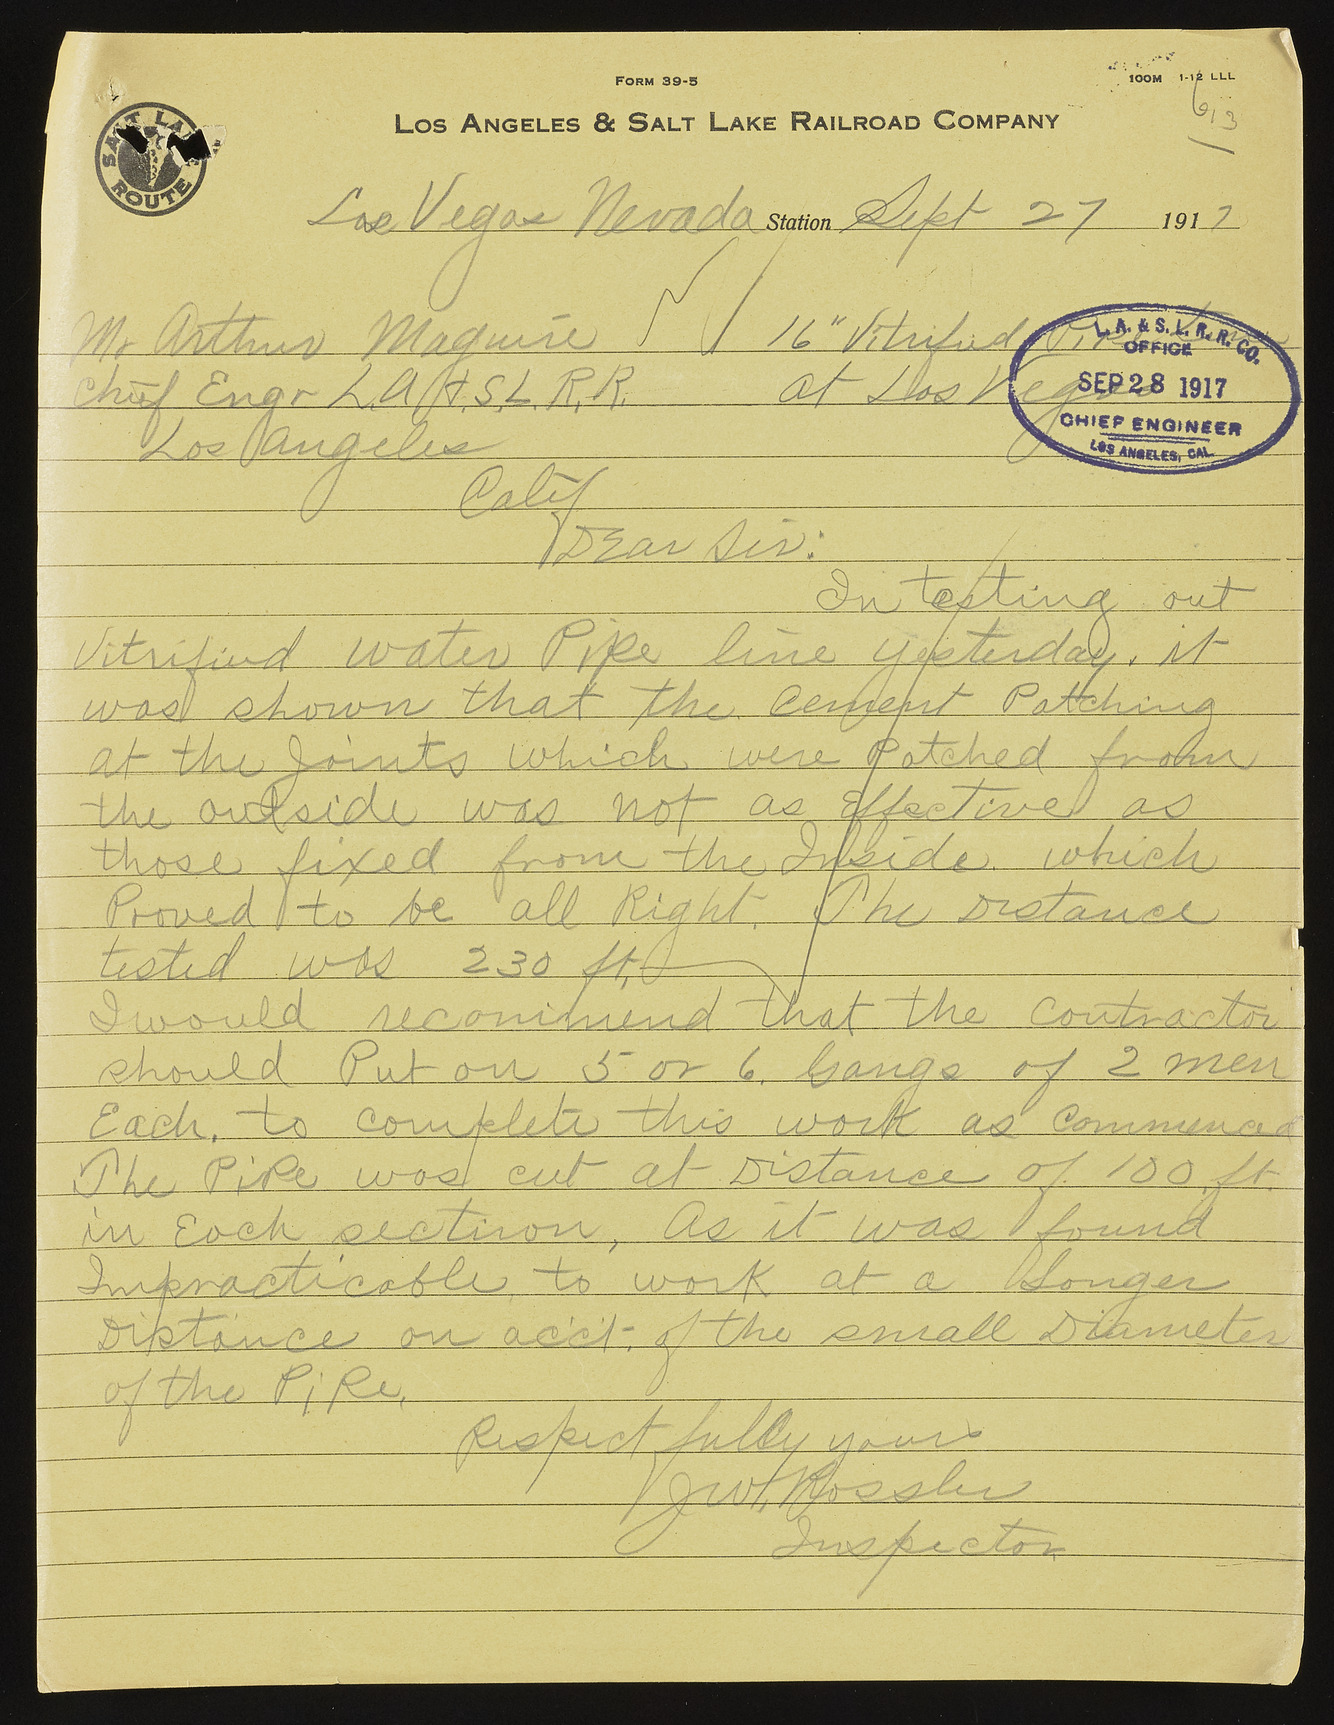 FORM 39-5
100M 1-12 LLL
613
LOS ANGELES & SALT LAKE RAILROAD COMPANY
SALT LAKE ROUTE
Las Vegas Nevada Station Sept 27 1917
Mr Arthur Maguire 16" Vitrified Pipe
Chief Engr L.A. & S.L. R.R. at Las Vegas
Los Angeles
Calif
L. A. & S. L. R. R. CO.
OFFICE
SEP 28 1917
CHIEF ENGINEER
LOS ANGELES, CAL.
Dear Sir:
In testing out
Vitrified water Pipe line yesterday, it
was shown that the Cement Patching
at the Joints which were Patched from
the outside was not as Effective as
those fixed from the Inside which
Proved to be all Right. The Distance
tested was 230 ft.
I would recommend that the contractor
should Put on 5 or 6 Gangs of 2 men
Each, to complete this work as Commenced
The Pipe was cut at Distance of 100 ft.
in Each section, As it was found
Impracticable to work at a Longer
Distance on acc't. of the small Diameter
of the Pipe.
Respectfully yours
J.W. Rossler
Inspector